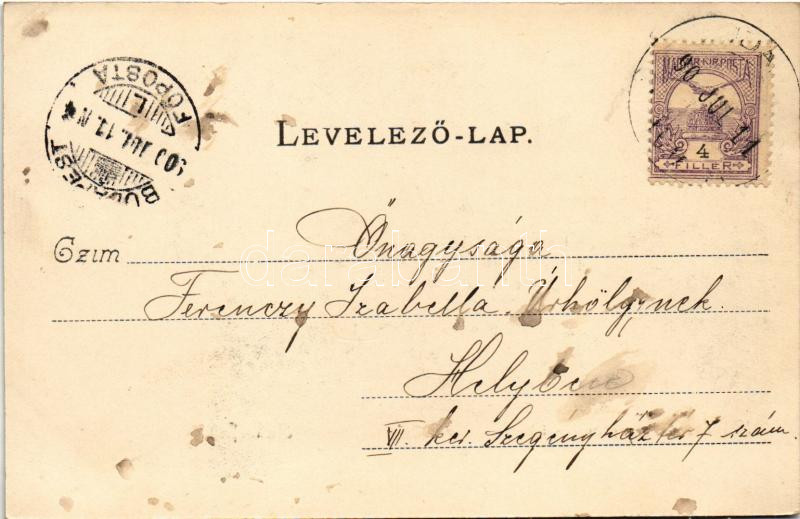 BUDAPEST
FŐPOSTA
900 JUL. 11. N 4
MAGYAR KIR. POSTA
4
FILLER
900 JUL 11
LEVELEZŐ-LAP.
Czim
Őnagysága
Ferenczy Izabella Úrhölgynek
Helyben
VII. ker. Szegényház tér 7 szám.
darabanth